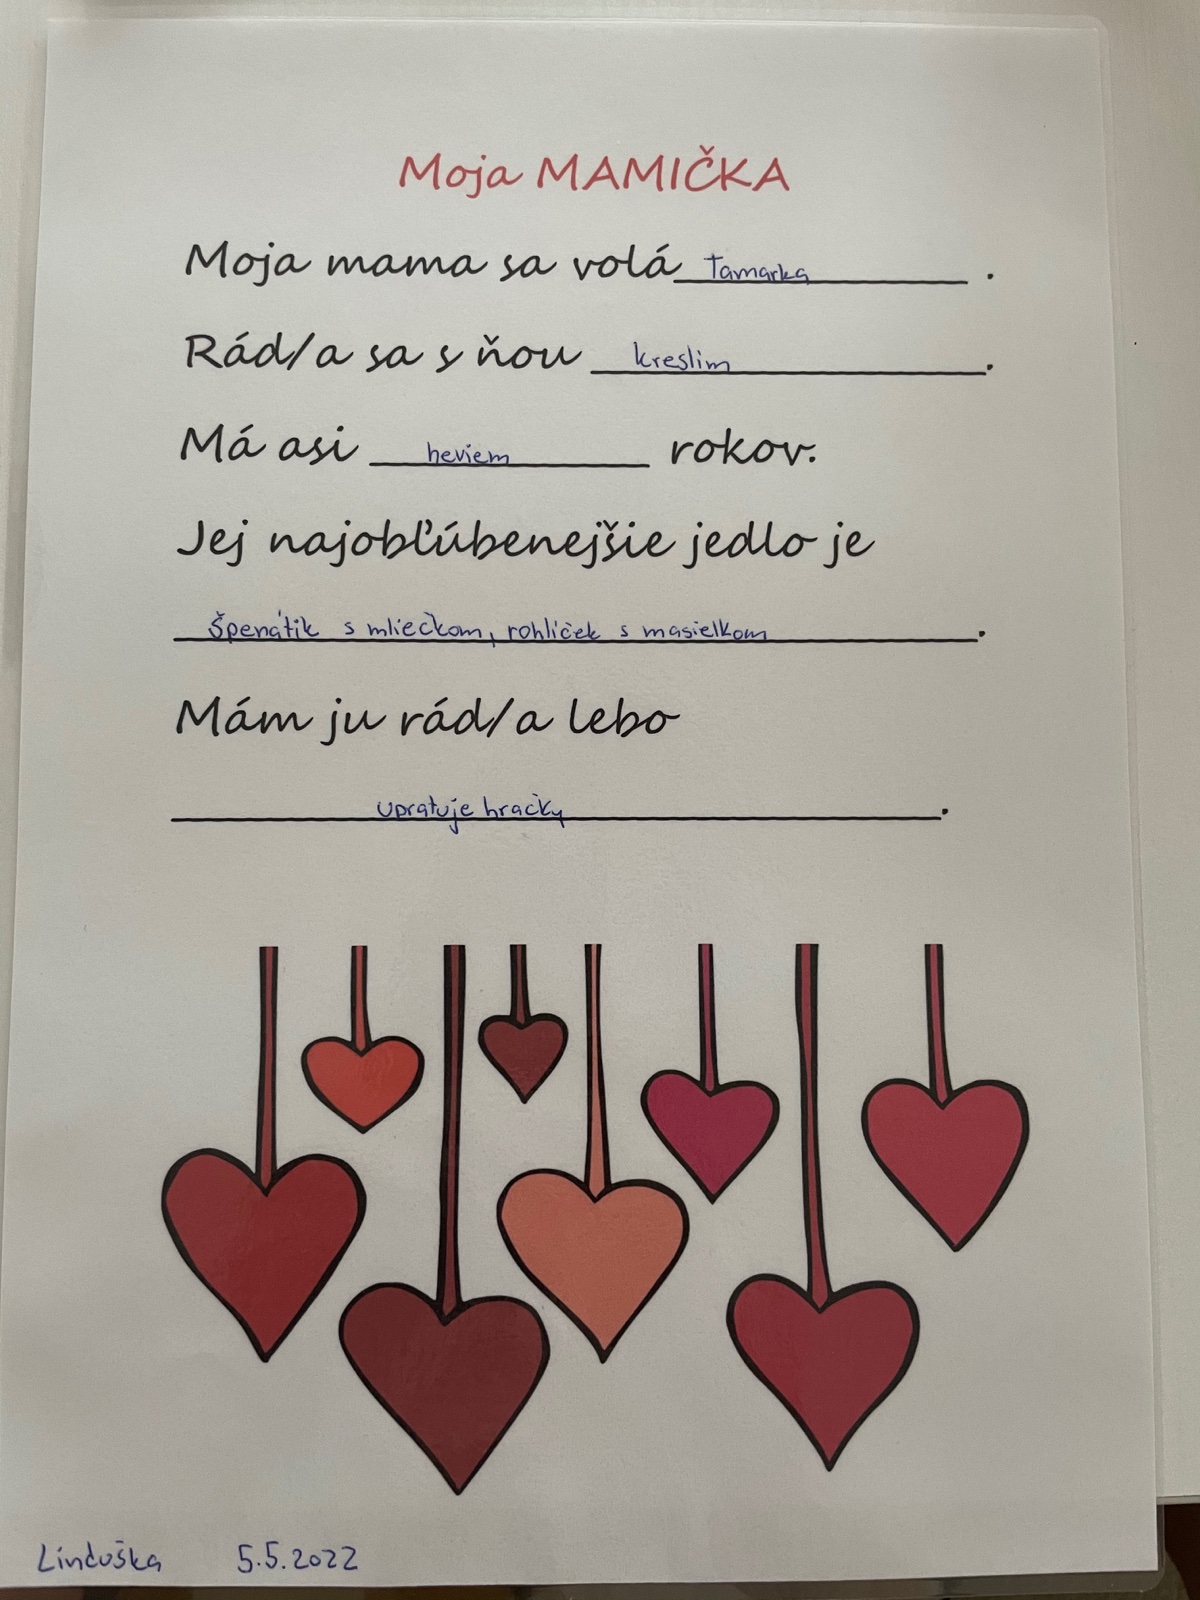 Moja MAMIČKA
Moja mama sa volá Tamarka .
Rád/a sa s ňou kreslim .
Má asi neviem rokov.
Jej najobľúbenejšie jedlo je
Špenátik s mliečkom, rohlíček s masielkom .
Mám ju rád/a lebo
upratuje hračky .
Linduška 5.5.2022